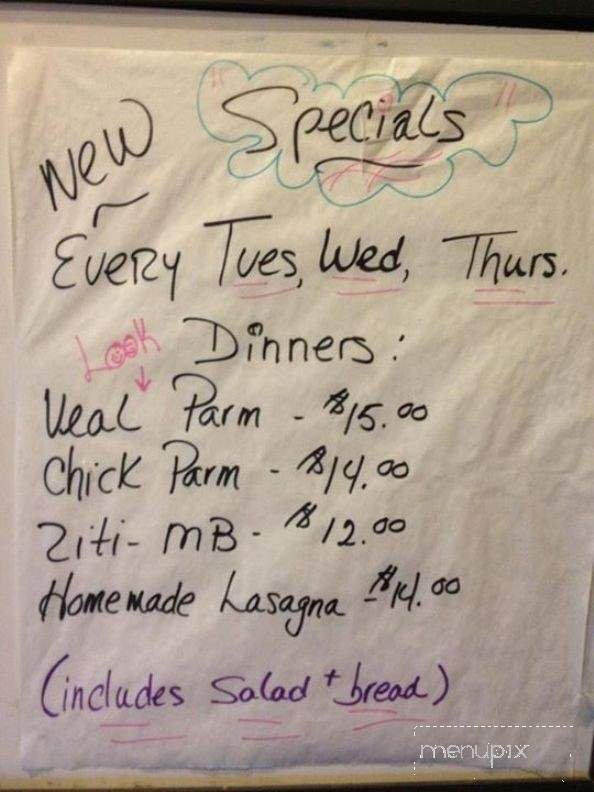 New Specials
Every Tues, Wed, Thurs.
Look Dinners:
Veal Parm - $15.00
Chick Parm - $14.00
Ziti - MB - $12.00
Homemade Lasagna - $14.00
(includes Salad + bread)
menupix